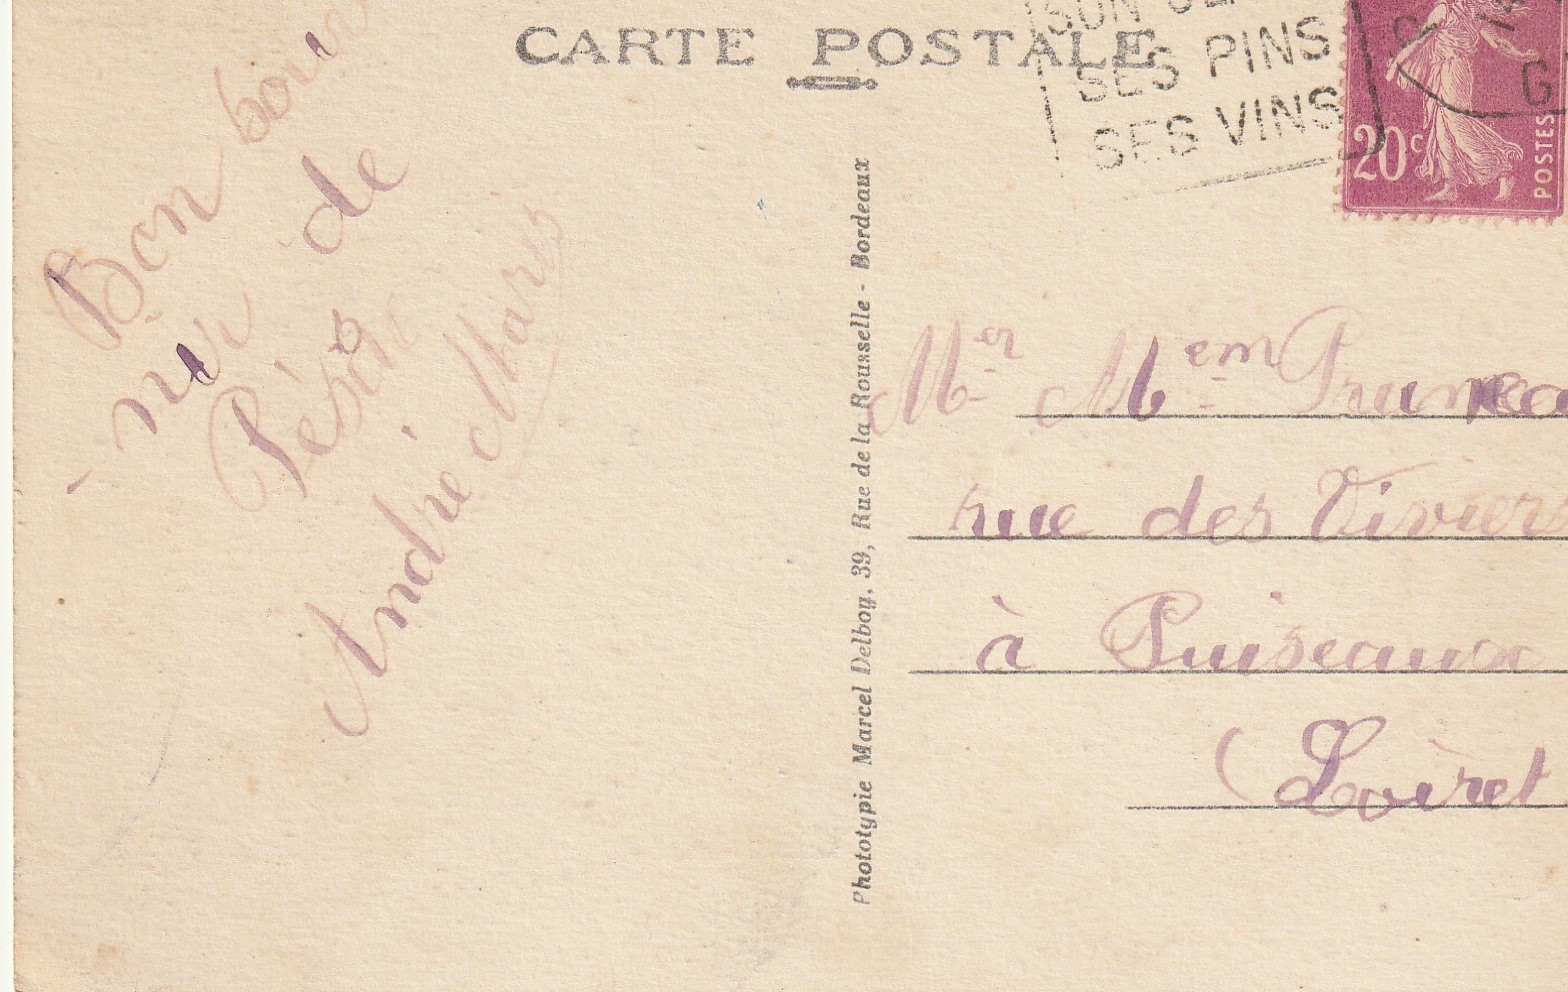 CARTE POSTALE
SES PINS
SES VINS
20c
POSTES
G
Bon
de
André
Phototypie Marcel Delboy, 39, Rue de la Rousselle - Bordeaux
Mer Mem
rue des Viviers
à Puiseaux
(Loiret